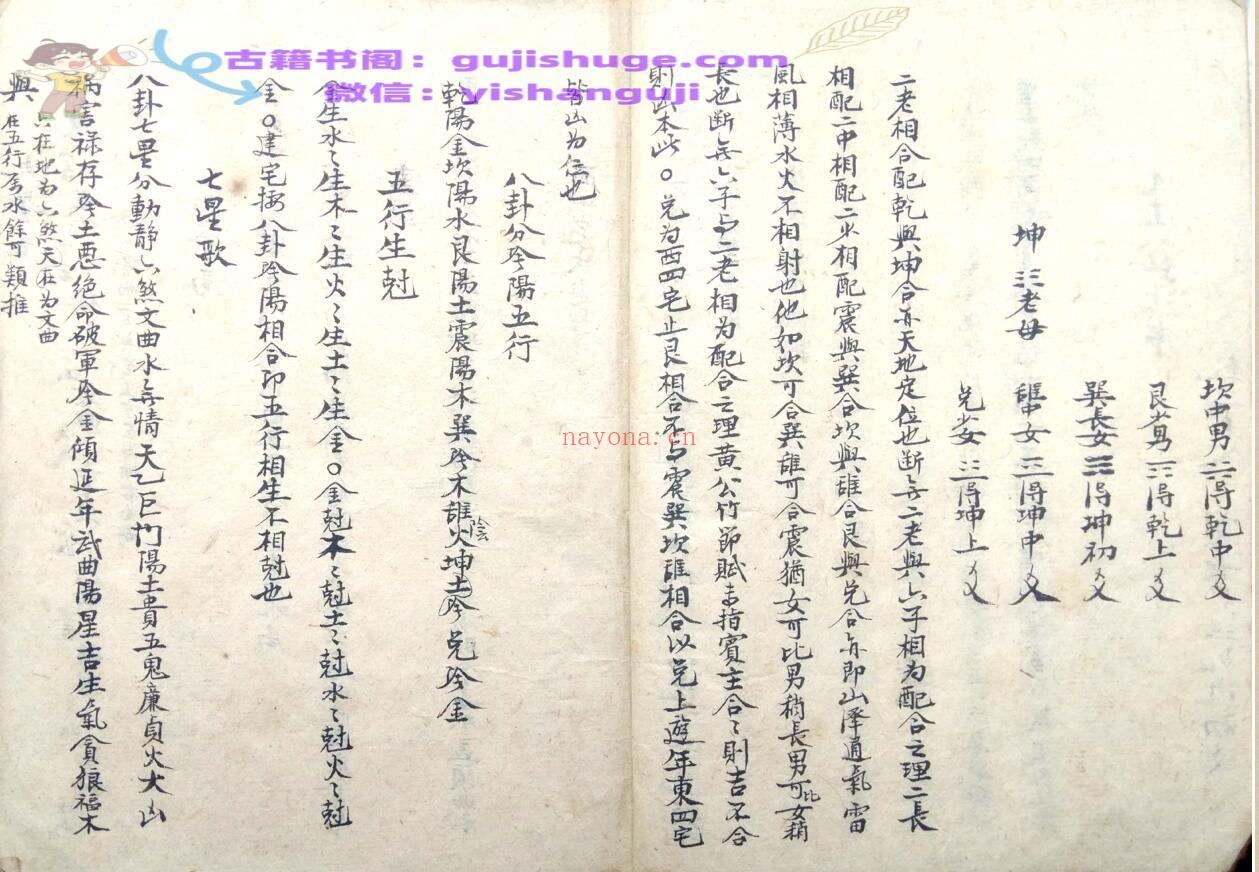 古籍书阁：gujishuge.com
微信：yishanguji
nayona.cn
坎中男☵得乾中爻
艮少男☶得乾上爻
巽長女☴得坤初爻
離中女☲得坤中爻
兌少女☱得坤上爻
坤☷老母
二老相合配乾與坤合亦天地定位也断無二老與六子相为配合之理二長
相配二中相配二少相配震與巽合坎與離合艮與兌合亦即山澤通氣雷
風相薄水火不相射也他如坎可合巽離可合震猶女可比男稍長男可比女稍
長也断無六子与二老相为配合之理黄公竹節賦未指賓主合〻則吉不合
則凶本此○兌为西四宅止艮相合不与震巽坎離相合以兌上遊年東四宅
皆凶为伍也
八卦分阴陽五行
乾陽金坎陽水艮陽土震陽木巽阴木離陰火坤土阴兌阴金
五行生尅
金生水〻生木〻生火〻生土〻生金○金尅木〻尅土〻尅水〻尅火〻尅
金○建宅按八卦阴陽相合印五行相生不相尅也
七星歌
八卦七星分動静六煞文曲水無情天乙巨门陽土貴五鬼廉貞火大凶
禍害禄存阴土惡絶命破軍阴金傾延年武曲陽星吉生氣貪狼福木
興 只在地为六煞在天为文曲
在五行为水餘可類推